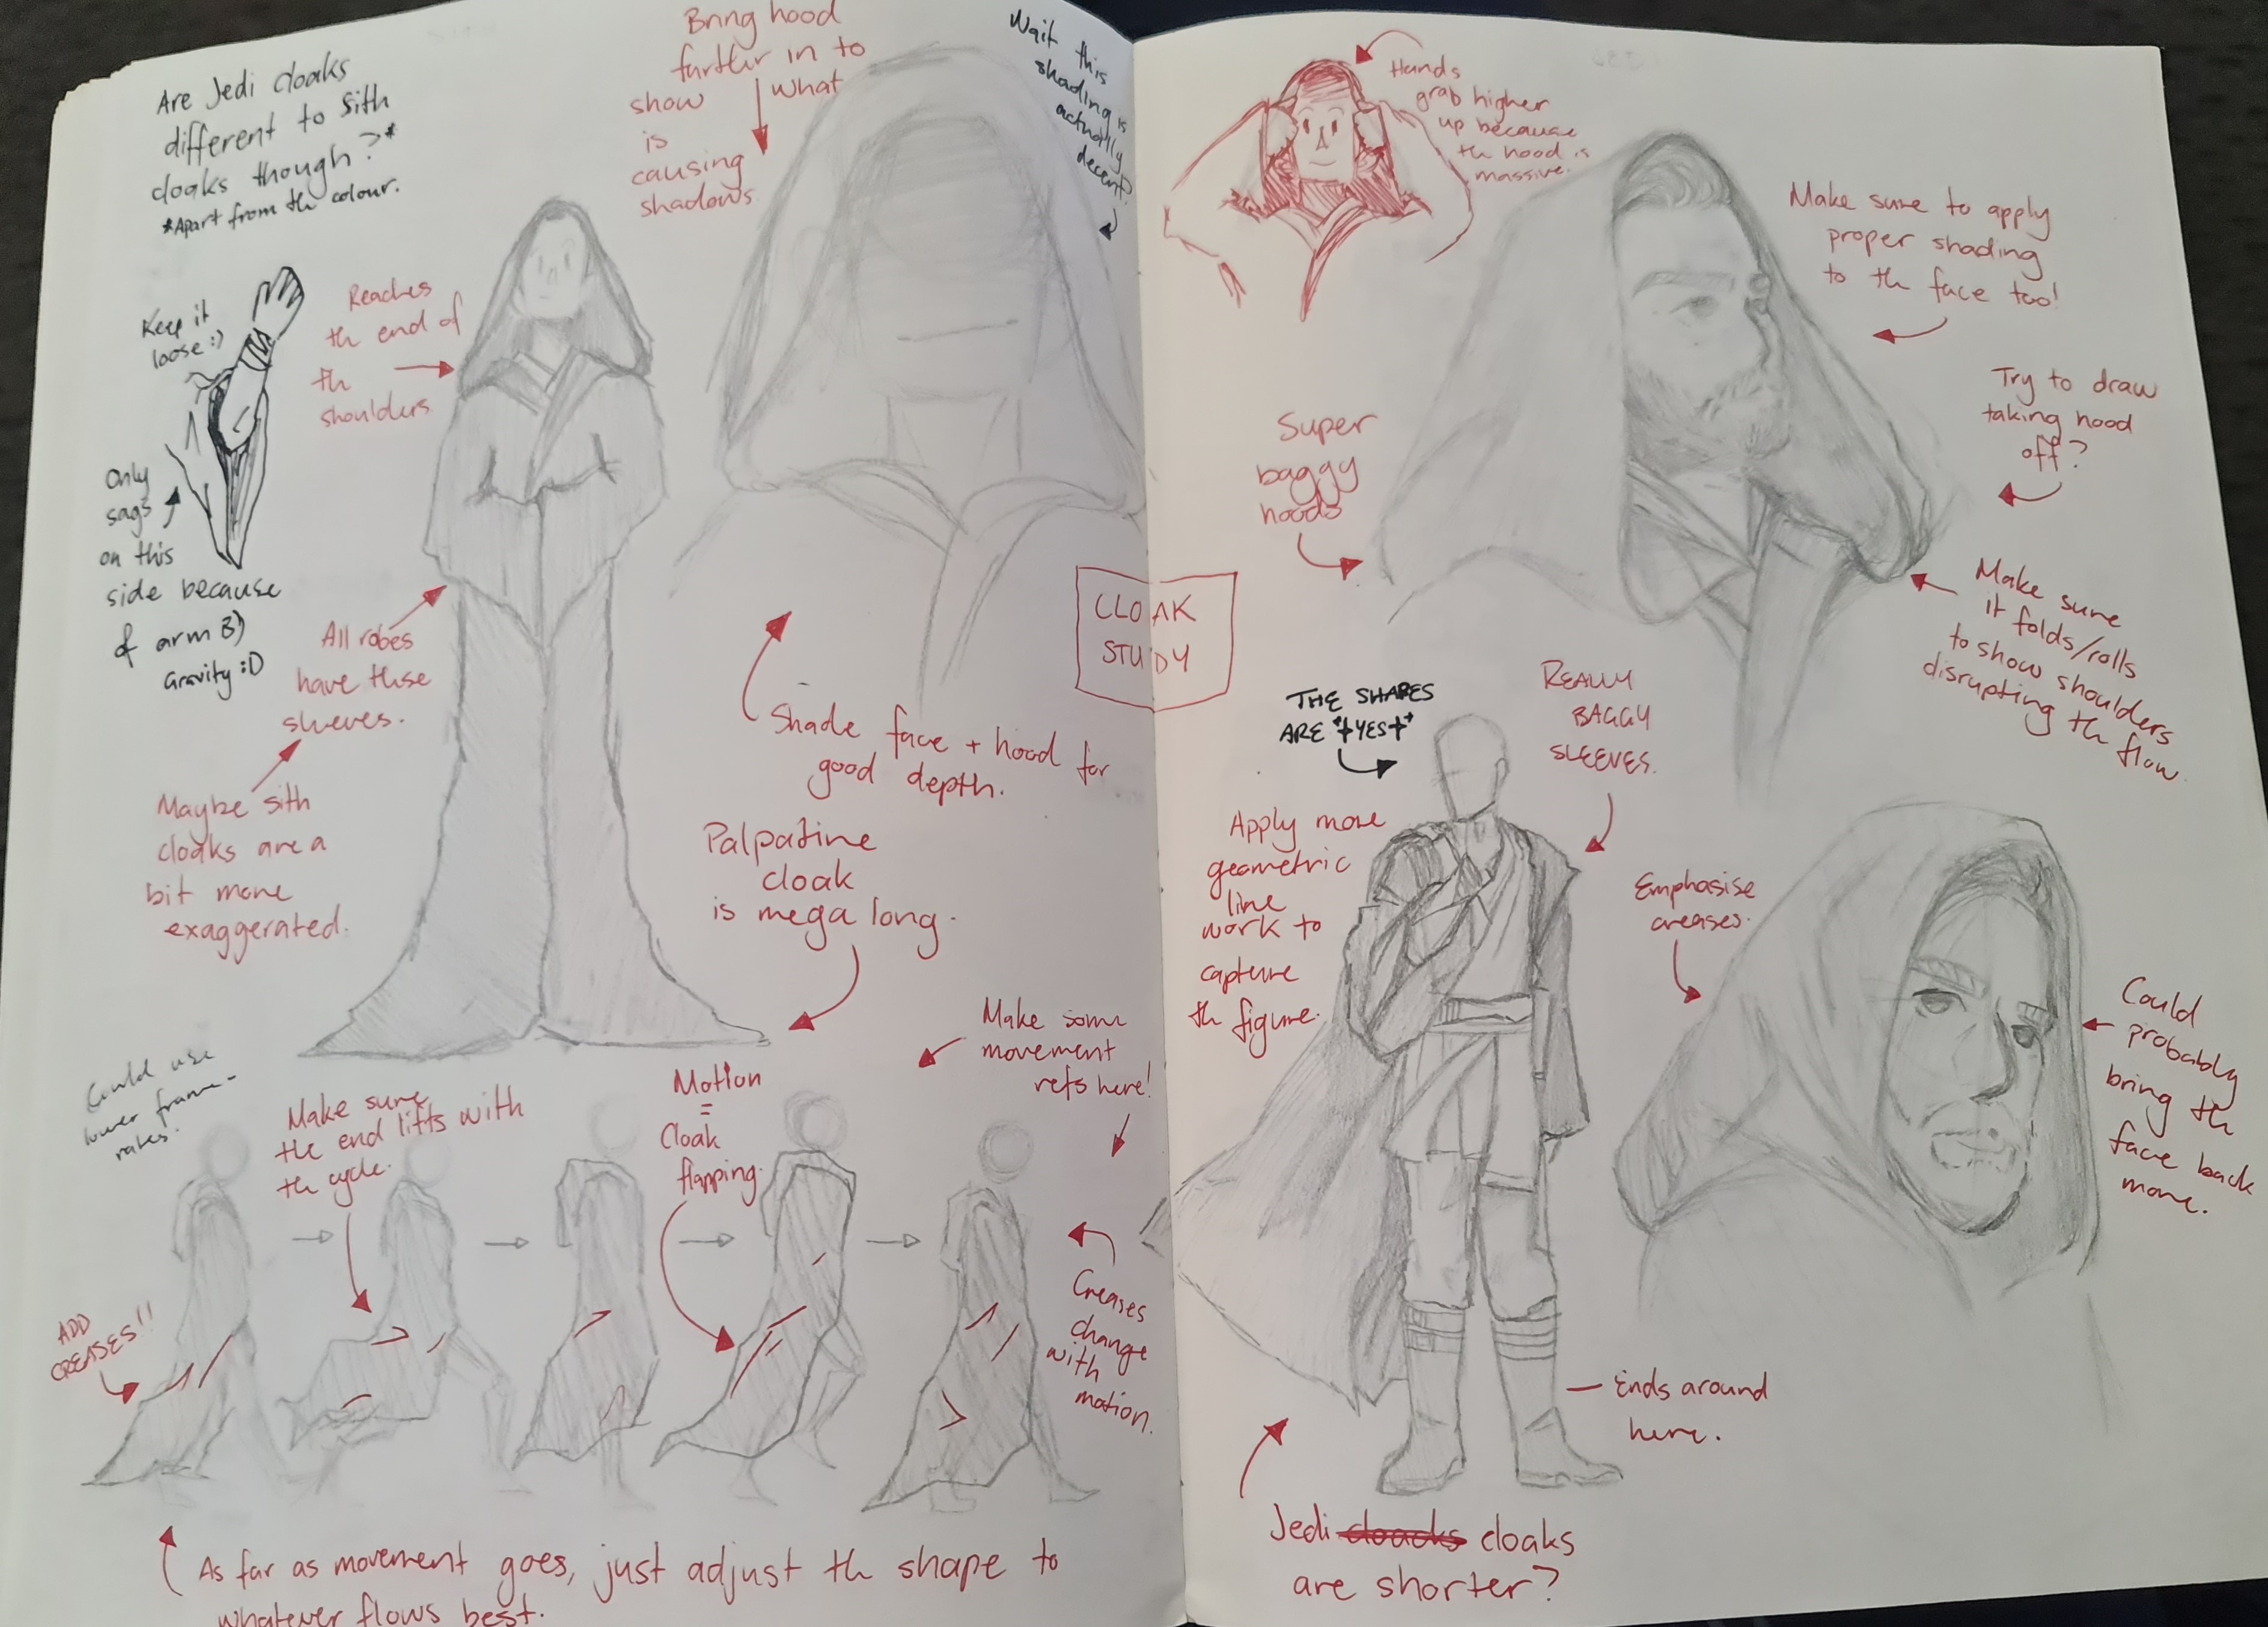 Are Jedi cloaks
different to Sith
cloaks though?*
*Apart from the colour.
Bring hood
further in to
show what
is
causing
shadows
Wait this
shading is
actually
decent?
Keep it
loose :)
Reaches
the end of
the
shoulders
Only
sags
on this
side because
of arm B)
Gravity :D
All robes
have these
sleeves.
Maybe sith
cloaks are a
bit more
exaggerated.
Shade face + hood for
good depth.
Palpatine
cloak
is mega long.
CLOAK
STUDY
Make some
movement
refs here!
Could use
lower frame-
rates.
Make sure
the end lifts with
the cycle.
Motion
=
Cloak
flapping.
ADD
CREASES!!
Creases
change
with
motion.
As far as movement goes, just adjust the shape to
whatever flows best.
Hands
grab higher
up because
the hood is
massive.
Make sure to apply
proper shading
to the face too!
Super
baggy
hoods
Try to draw
taking hood
off?
Make sure
it folds/rolls
to show shoulders
disrupting the flow.
THE SHAPES
ARE *YES*
REALLY
BAGGY
SLEEVES.
Apply more
geometric
line
work to
capture
the figure.
Emphasise
creases.
Could
probably
bring the
face back
more.
Ends around
here.
Jedi cloacks cloaks
are shorter?